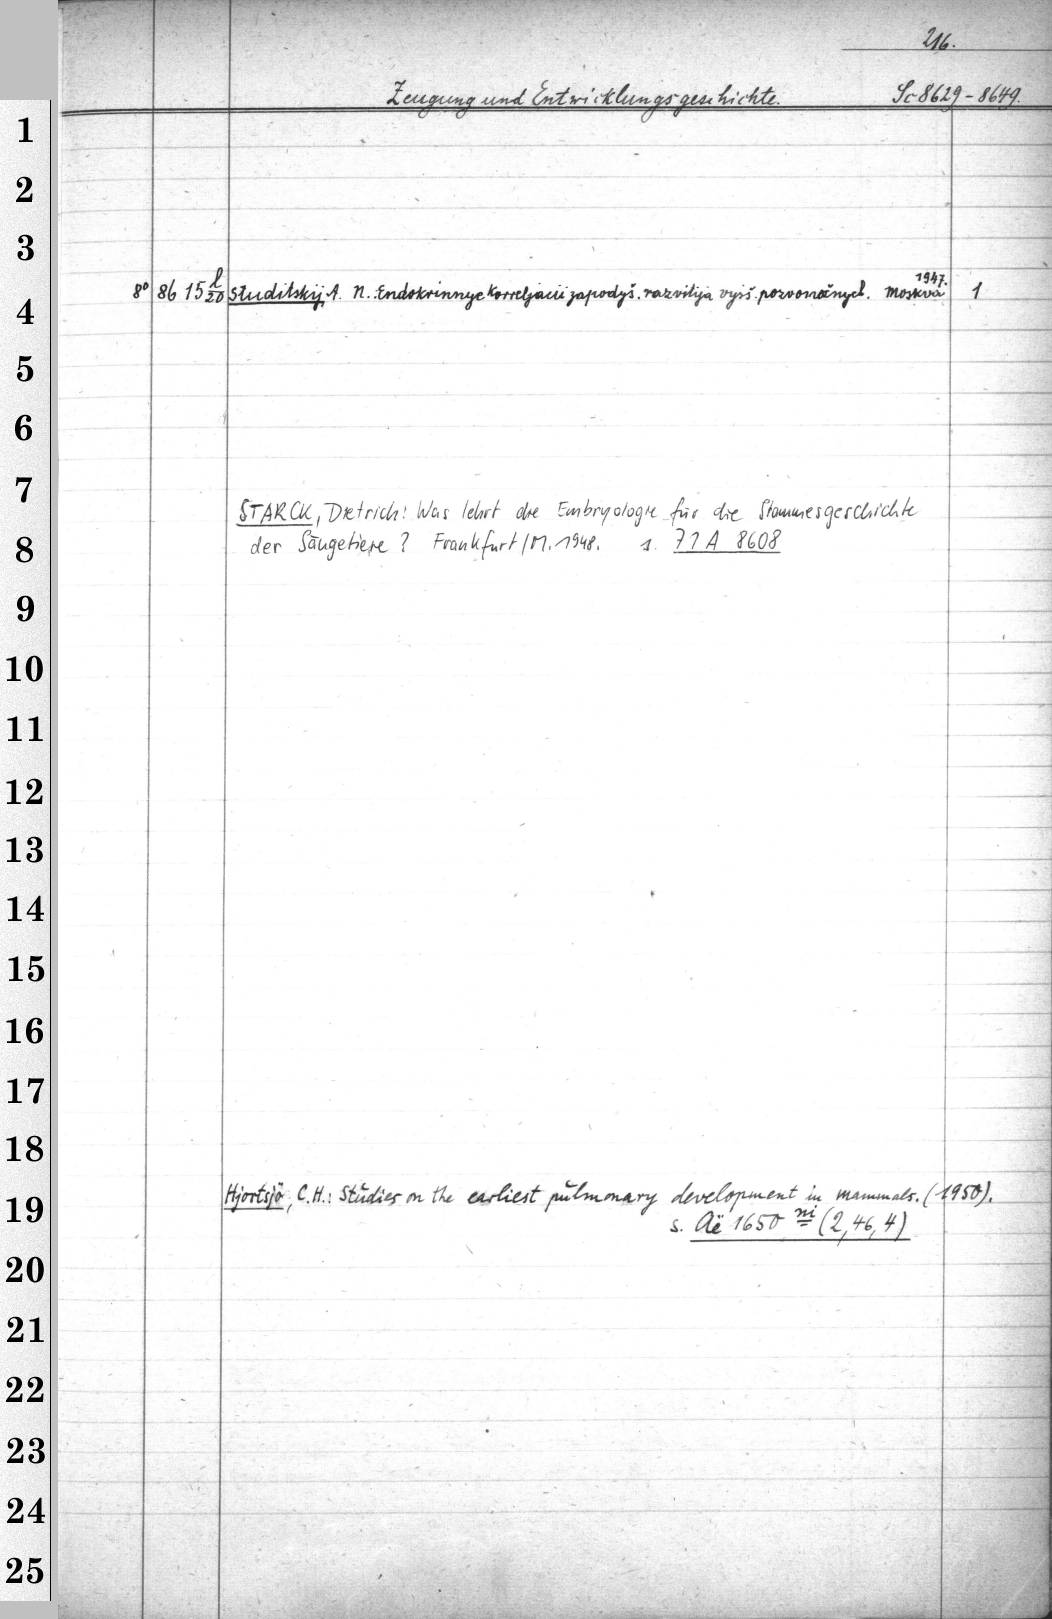 216.
Zeugung und Entwicklungsgeschichte. Sc 8629 - 8649.
1
2
3
1947.
8° 86 15 l/20 Studitskij, A. N.: Endokrinnye Korreljacii zarodyš. razvitija vysš. pozvonočnych. Moskva 1
4
5
6
7
STARCK, Dietrich: Was lehrt die Embryologie für die Stammesgeschichte
der Säugetiere? Frankfurt/M. 1948. s. 71 A 8608
8
9
10
11
12
13
14
15
16
17
18
Hjortsjö, C.H.: Studies on the earliest pulmonary development in mammals. (1950).
19
s. Aë 1650 ni (2,46,4)
20
21
22
23
24
25